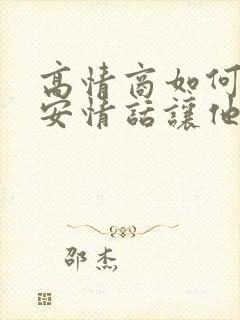 高情商如何
安情話讓他
邵杰